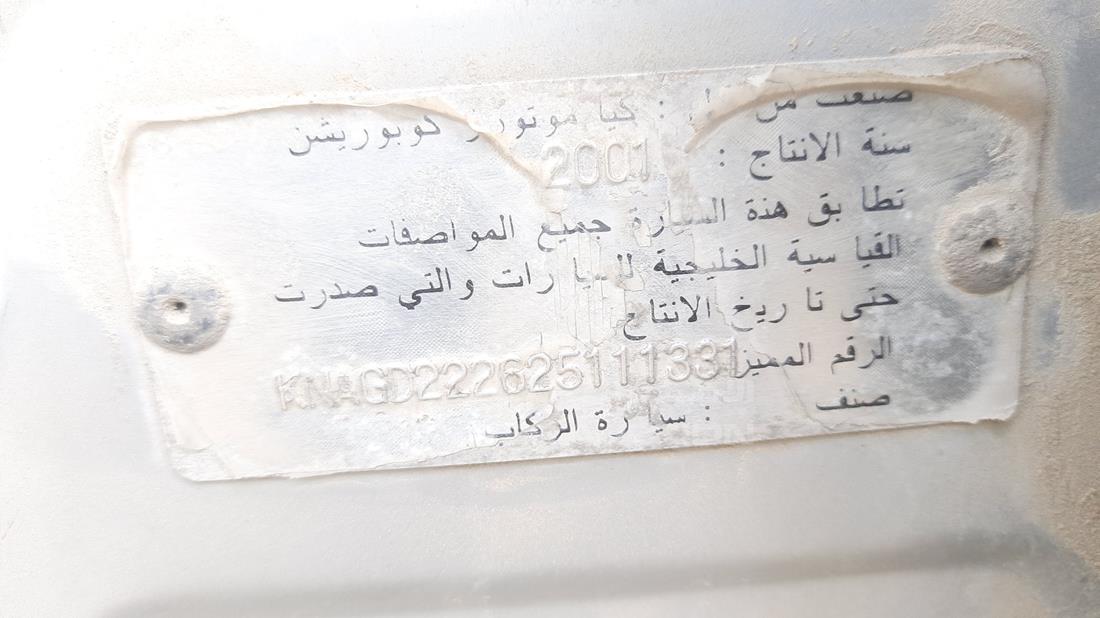 صنعت من : كيا موتورز كوبوريشن
سنة الانتاج : 2001
تطابق هذة السيارة جميع المواصفات
القياسية الخليجية للسيارات والتي صدرت
حتى تاريخ الانتاج
الرقم المميز KNAGD222625111331
صنف : سيارة الركاب